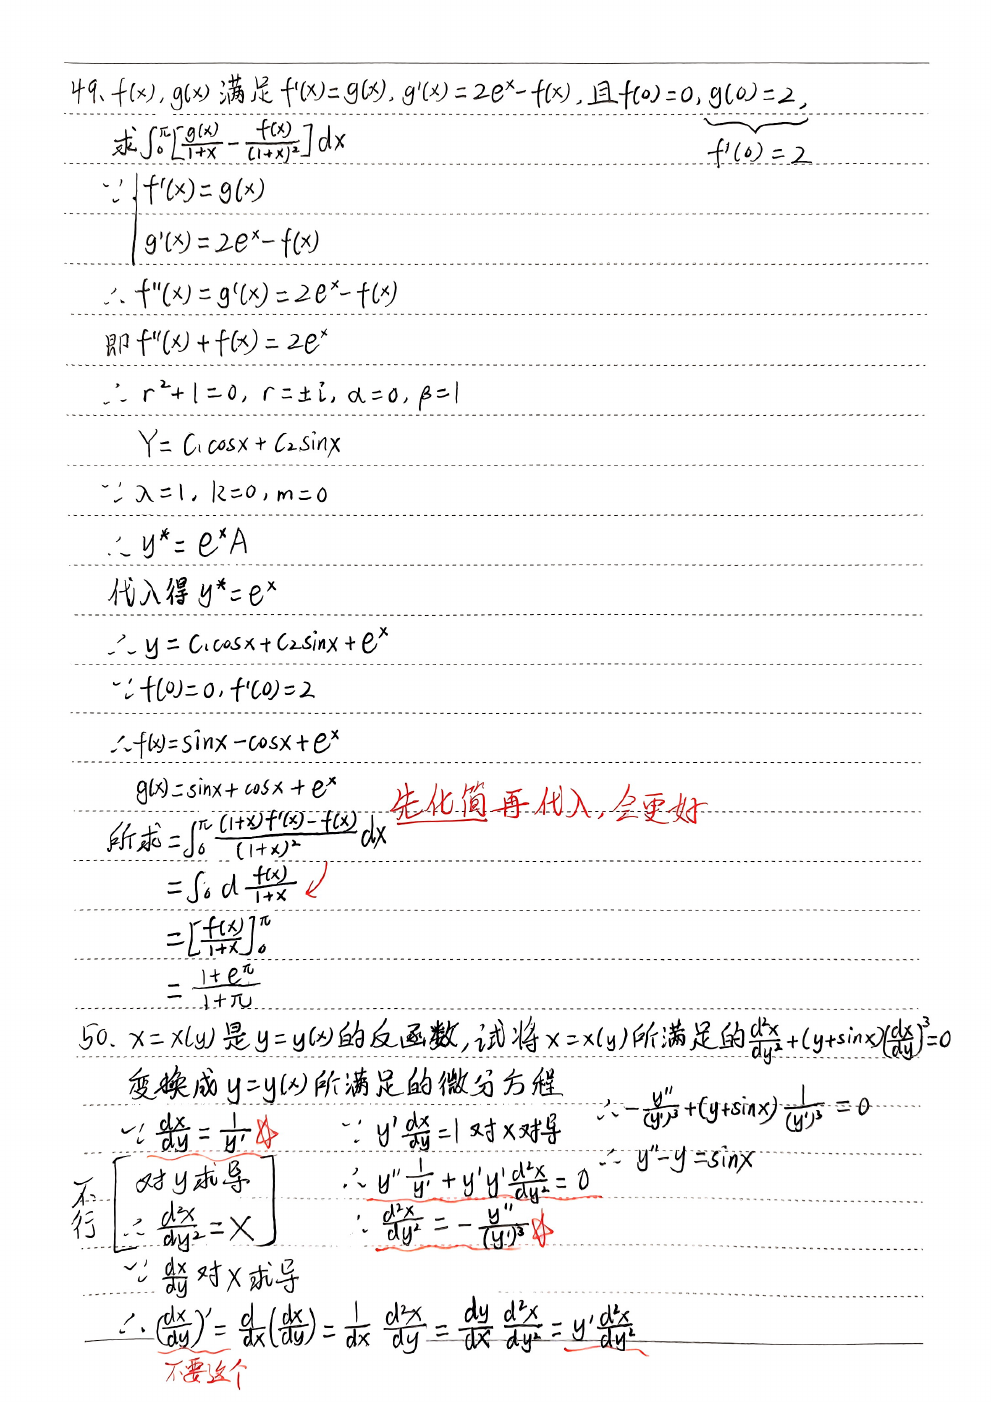 49、f(x), g(x) 满足 f'(x)=g(x), g'(x)=2e^x-f(x), 且 f(0)=0, g(0)=2,
求∫₀^π[g(x)/(1+x) - f(x)/(1+x)²]dx
f'(0)=2
∵ f'(x)=g(x)
g'(x)=2e^x-f(x)
∴ f''(x)=g'(x)=2e^x-f(x)
即 f''(x)+f(x)=2e^x
∴ r²+1=0, r=±i, α=0, β=1
Y=C₁cosx+C₂sinx
∵ λ=1, k=0, m=0
∴ y*=e^xA
代入得 y*=e^x
∴ y=C₁cosx+C₂sinx+e^x
∵ f(0)=0, f'(0)=2
∴ f(x)=sinx-cosx+e^x
g(x)=sinx+cosx+e^x
先化简再代入,会更好
所求=∫₀^π ((1+x)f'(x)-f(x))/(1+x)² dx
=∫₀ d f(x)/(1+x)
=[f(x)/(1+x)]₀^π
=(1+e^π)/(1+π)
50. x=x(y)是y=y(x)的反函数,试将x=x(y)所满足的d²x/dy²+(y+sinx)(dx/dy)³=0
变换成y=y(x)所满足的微分方程
∵ dx/dy=1/y' ☆
不行
对y求导
∴ d²x/dy²=X
∵ dx/dy 对x求导
∴ (dx/dy)'=d/dx(dx/dy)=1/dx d²x/dy=dy/dx d²x/dy²=y' d²x/dy²
不要这个
∵ y' dx/dy=1 对x求导
∴ y'' 1/y'+y'y' d²x/dy²=0
∵ d²x/dy²=-y''/(y')³ ☆
∴ -y''/(y')³+(y+sinx)·1/(y')³=0
∴ y''-y=sinx